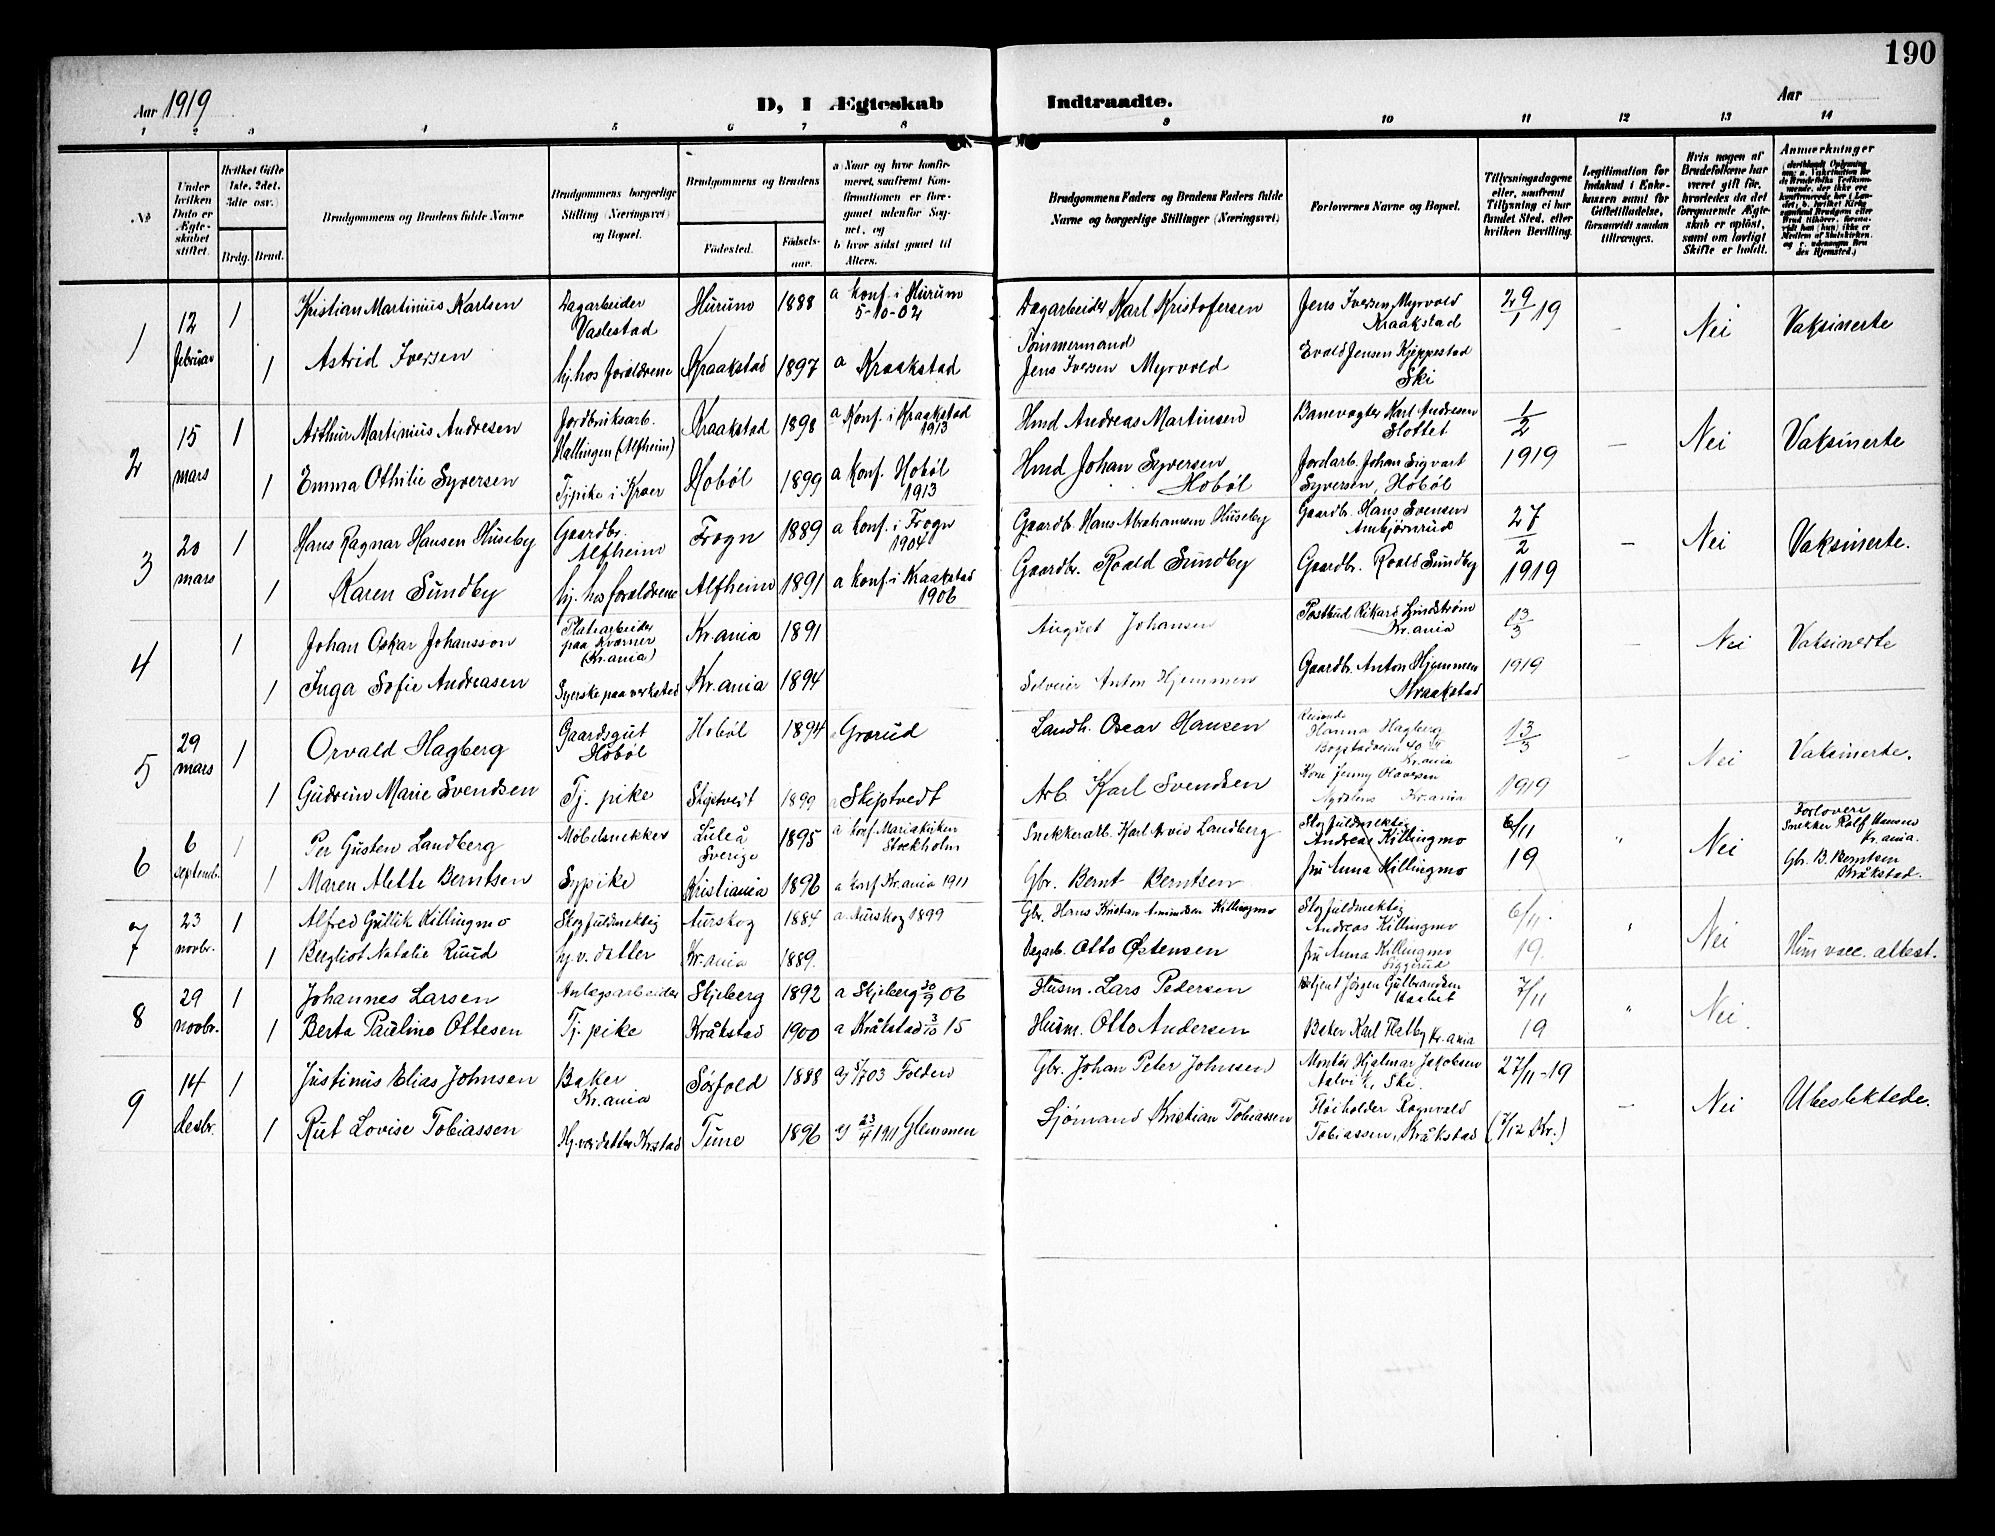 190
Aar 1919
D, I Ægteskab Indtraadte.
Aar
1 2 3 4 5 6 7 8 9 10 11 12 13 14
No
Under hvilken Dato er Ægteskabet stiftet.
Hvilket Gifte 1ste, 2det, 3die osv.)
Brdg. Brud.
Brudgommens og Brudens fulde Navne
Brudgommens borgerlige Stilling (Næringsvei) og Bopæl.
Brudgommens og Brudens
Födested. Födselsaar.
a) Naar og hvor konfirmeret, saafremt Konfirmationen er foregaaet udenfor Sognet, og
b) hvor sidst gaaet til Alters.
Brudgommens Faders og Brudens Faders fulde Navne og borgerlige Stillinger (Næringsvei)
Forlovernes Navne og Bopæl.
Tillysningsdagene eller, saafremt Tillysning ei har fundet Sted, efter hvilken Bevilling.
Legitimation for Indskud i Enkekassen samt for Giftetilladelse, forsaavidt saadan tiltrænges.
Hvis nogen af Brudefolkene har været gift för, hvorledes da det foregaaende Ægteskab er oplöst, samt om lovligt Skifte er holdt.
Anmerkninger
1
12 februar
1
Kristian Martinius Karlsen
Dagarbeider
Vaslestad
Hurum
1888
a konf. i Hurum
5-10-02
Dagarbeider Karl Kristofersen
Jens Iversen Myrvold
Kraakstad
29/1 19
–
Nei
Vaksinerte
1
Astrid Iversen
hj. hos forældrene
Kraakstad
1897
a Kraakstad
Tømmermand
Jens Iversen Myrvold
Evald Jensen Kjeppestad
Ski
2
15 mars
1
Arthur Martinius Andresen
Jordbruksarb.
Hallingen (Alfheim)
Kraakstad
1898
a Konf. i Kraakstad
1913
Hmd Andreas Martinsen
Banevogter Karl Andresen
Slottet
1/2
1919
–
Nei
Vaksinerte
1
Emma Othilie Syversen
Tj.pike i Kroer
Hobøl
1899
a Konf. Hobøl
1913
Hmd Johan Syversen
Hobøl
Jordarb. Johan Sigvart
Syversen, Hobøl
3
20 mars
1
Hans Ragnar Hansen Huseby
Gaardbr.
Alfheim
Frogn
1889
a konf. i Frogn
1904
Gaardbr. Hans Abrahamsen Huseby
Gaardbr. Hans Svensen
Ambjørnrud
27/2
1919
–
Nei
Vaksinerte.
1
Karen Sundby
hj. hos forældrene
Alfheim
1891
a konf. i Kraakstad
1906
Gaardbr. Roald Sundby
Gaardbr. Roald Sundby
4
1
Johan Oskar Johansson
Platearbeider
paa Kværner
(Kr.ania)
Kr.ania
1891
August Johansen
Postbud Rikard Lindstrøm
Kr.ania
13/3
1919
–
Nei
Vaksinerte
1
Inga Sofie Andreasen
Syerske paa verkstad
Kr.ania
1894
Selveier Anton Hjemmen
Gaardbr. Anton Hjemmen
Kraakstad
5
29 mars
1
Orvald Hagberg
Gaardsgut
Hobøl
Hobøl
1894
a Grorud
Landh. Oscar Hansen
Hanna Hagberg
Bogstadveien 40
Kr.ania
13/3
1919
–
Nei
Vaksinerte.
1
Gudrun Marie Svendsen
Tj. pike
Skiptvedt
1899
a Skiptvedt
Arb. Karl Svendsen
Kone Jenny Olavesen
Kr.ania
6
6 septemb.
1
Per Gusten Landberg
Møbelsnekker
Luleå
Sverige
1895
a konf. Mariakirken
Stockholm
Snekkerarb. Karl Arvid Landberg
Skogfuldmektig
Andreas Killingmo
6/11
19
"
Nei
Forlovere
Snekker Rolf Hansen
Kr.ania.
1
Maren Alette Berntsen
Sypike
Kristiania
1896
a konf Kr.ania 1911
Gbr. Bernt Berntsen
fru Anna Killingmo
Gbr. B. Berntsen
Kråkstad.
7
23 novbr.
1
Alfred Gullik Killingmo
Skogfuldmektig
Aurskog
1884
a Aurskog 1899
Gbr. Hans Kristian Amundsen Killingmo
Skogfuldmektig
Andreas Killingmo
6/11.
19.
"
Nei
1
Bergliot Natalie Ruud
hj.v. datter
Kr.ania
1889.
Dagarb. Otto Østensen
fru Anna Killingmo
Siggerud
Hun vacc. attest.
8
29 novbr.
1
Johannes Larsen
Anlægsarbeider
Skjeberg
1892
a Skjeberg 30/9 06
Husm. Lars Pedersen
Jørgen Gulbrandsen
7/11
19
"
Nei.
1
Berta Pauline Ottesen
Tj. pike
Kråkstad
1900
a Kråkstad 3/10 15
Husm. Otto Andersen
Baker Karl Flatby Kr.ania
9
14 desbr.
1
Justinus Elias Johnsen
Baker
Kr.ania
Sørfold
1888
a) 5/7 03 Folden
Gbr. Johan Peter Johnsen
Montør Hjalmar Jakobsen
Ski.
27/11-19
(7/12 Kr.)
–
Nei
Ubeslektede.
1
Rut Lovise Tobiassen
Hj.vær. datter Kr.stad
Tune
1896
a) 23/4 1911 Glemmen
Sjømand Kristian Tobiassen
Ragnvald
Tobiassen, Kråkstad